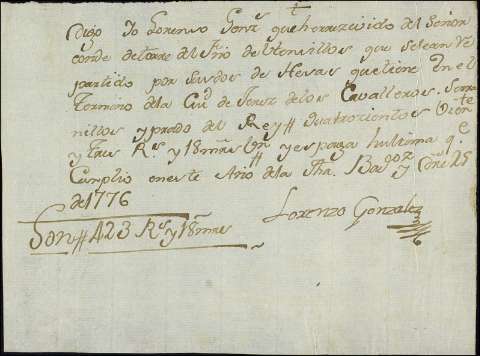 Digo Yo Lorenzo Gonz.s que he rrezivido del Señor
conde de torre del fño de los que se le an
partido por sus dos de Hevas que tiene En el
Termino de la Ciu.d de Jerez de los Cavalleros.
nillos y prado del Rey # quatrozientos Veinte
y Tres R.s y 18 mrs Vn # y es paga hultima q.e
Cumplio en este Año de la fha. Bad.oz y En.o 25
de 1776
Son # 423 R.s y 18 mrs
Lorenzo Gonzalez